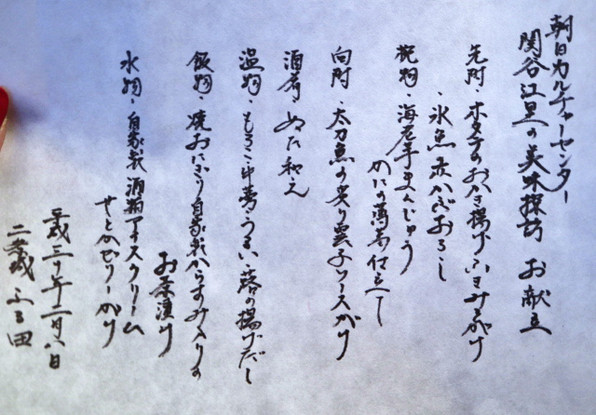 朝日カルチャーセンター
関谷江里の美味探訪 お献立
先附・ホタテのおかき揚げ ふきみそがけ
・氷魚 赤かぶおろし
椀物・海老芋まんじゅう
かにの薄葛仕立て
向附・太刀魚の炙り 雲子ソースがけ
酒肴・ぬた和え
温物・もろこ・牛蒡・うるい・蕗の揚げだし
飯物・焼おにぎり自家製からすみ入りの
お茶漬け
水物・自家製 酒粕アイスクリーム
せとかゼリーがけ
平成三十年二月八日
二条城ふる田